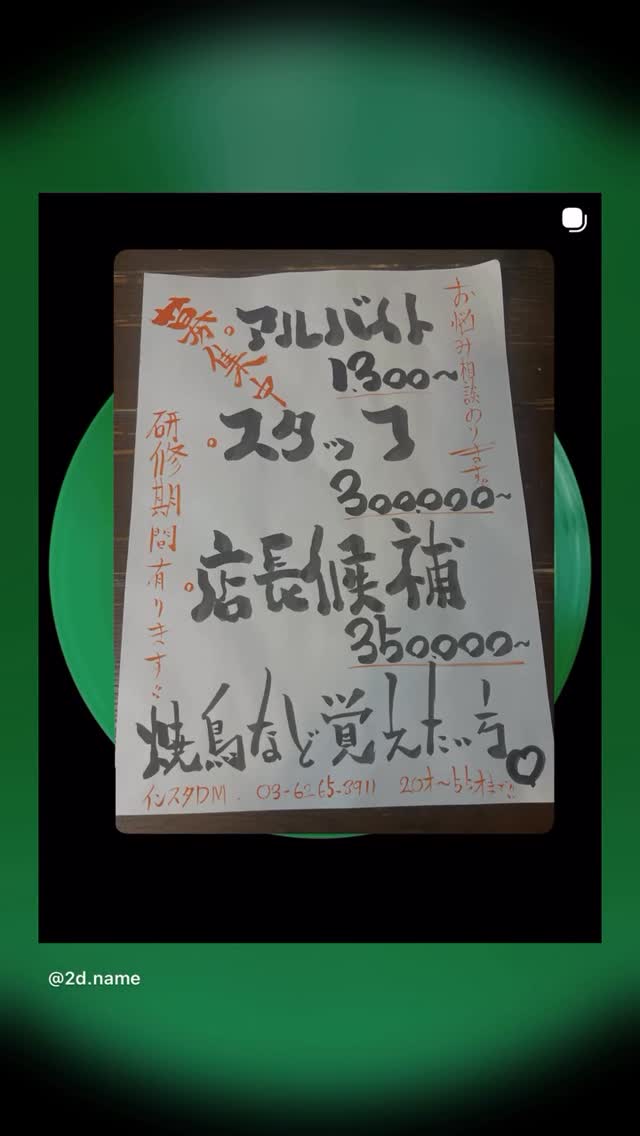 募集中
・アルバイト
1.300〜
・スタッフ
300.000〜
・店長候補
350.000〜
お悩み相談のります!!
研修期間有ります!!
焼鳥など覚えたい方♡
インスタDM. 03-6265-3911 20才〜55才まで!!
@2d.name